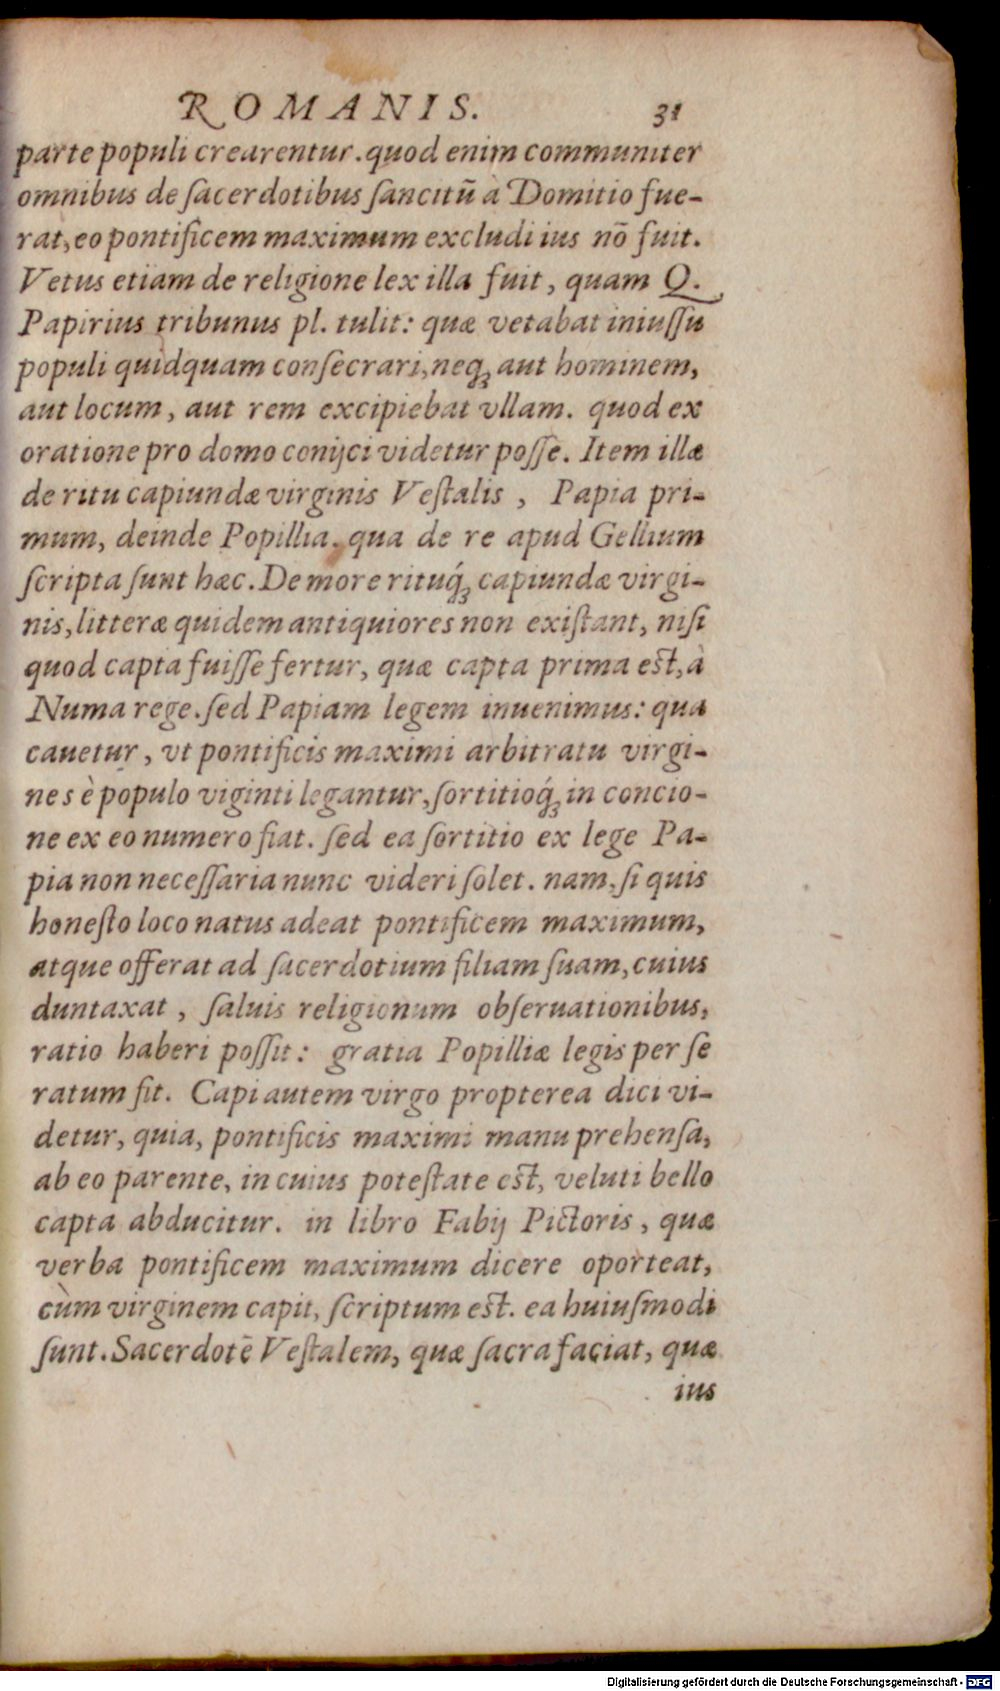 ROMANIS. 31
parte populi crearentur. quod enim communiter
omnibus de ſacerdotibus ſancitũ à Domitio fue-
rat, eo pontificem maximum excludi ius nõ fuit.
Vetus etiam de religione lex illa fuit, quam Q.
Papirius tribunus pl. tulit: quæ vetabat iniuſſu
populi quidquam conſecrari, neq́ʒ aut hominem,
aut locum, aut rem excipiebat vllam. quod ex
oratione pro domo conijci videtur poſſe. Item illæ
de ritu capiundæ virginis Veſtalis, Papia pri-
mum, deinde Popillia. qua de re apud Gellium
ſcripta ſunt hæc. De more rituq́ʒ capiundæ virgi-
nis, litteræ quidem antiquiores non exiſtant, niſi
quod capta fuiſſe fertur, quæ capta prima eſt, à
Numa rege. ſed Papiam legem inuenimus: qua
cauetur, vt pontificis maximi arbitratu virgi-
nes è populo viginti legantur, ſortitioq́ʒ in concio-
ne ex eo numero fiat. ſed ea ſortitio ex lege Pa-
pia non neceſſaria nunc videri ſolet. nam, ſi quis
honeſto loco natus adeat pontificem maximum,
atque offerat ad ſacerdotium filiam ſuam, cuius
duntaxat, ſaluis religionum obſeruationibus,
ratio haberi poſſit: gratia Popilliæ legis per ſe
ratum fit. Capi autem virgo propterea dici vi-
detur, quia, pontificis maximi manu prehenſa,
ab eo parente, in cuius poteſtate eſt, veluti bello
capta abducitur. in libro Fabij Pictoris, quæ
verba pontificem maximum dicere oporteat,
cùm virginem capit, ſcriptum eſt. ea huiuſmodi
ſunt. Sacerdotẽ Veſtalem, quæ ſacra faciat, quæ
ius
Digitalisierung gefördert durch die Deutsche Forschungsgemeinschaft - DFG